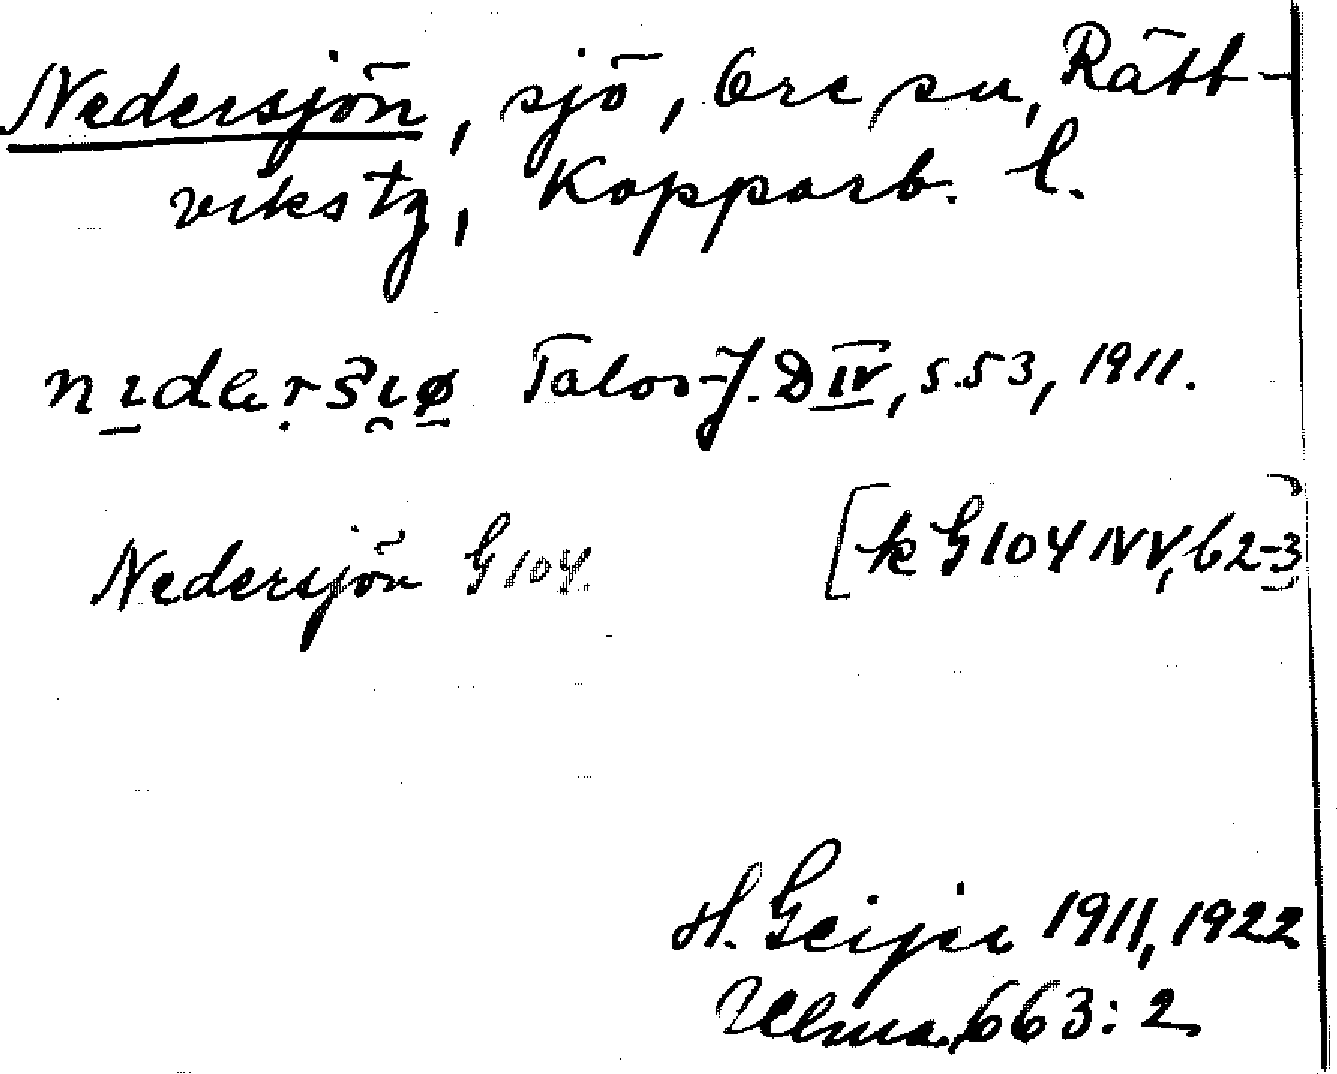 Nedersjön, sjö, Ore sn, Rätt-
viks tg, Kopparb. l.
nıdersıø Talos J. D IV, s. 53, 1911.
Nedersjön G 104. [k G 104 NV, 62-3]
H. Geijer 1911, 1922
Ulma 663: 2